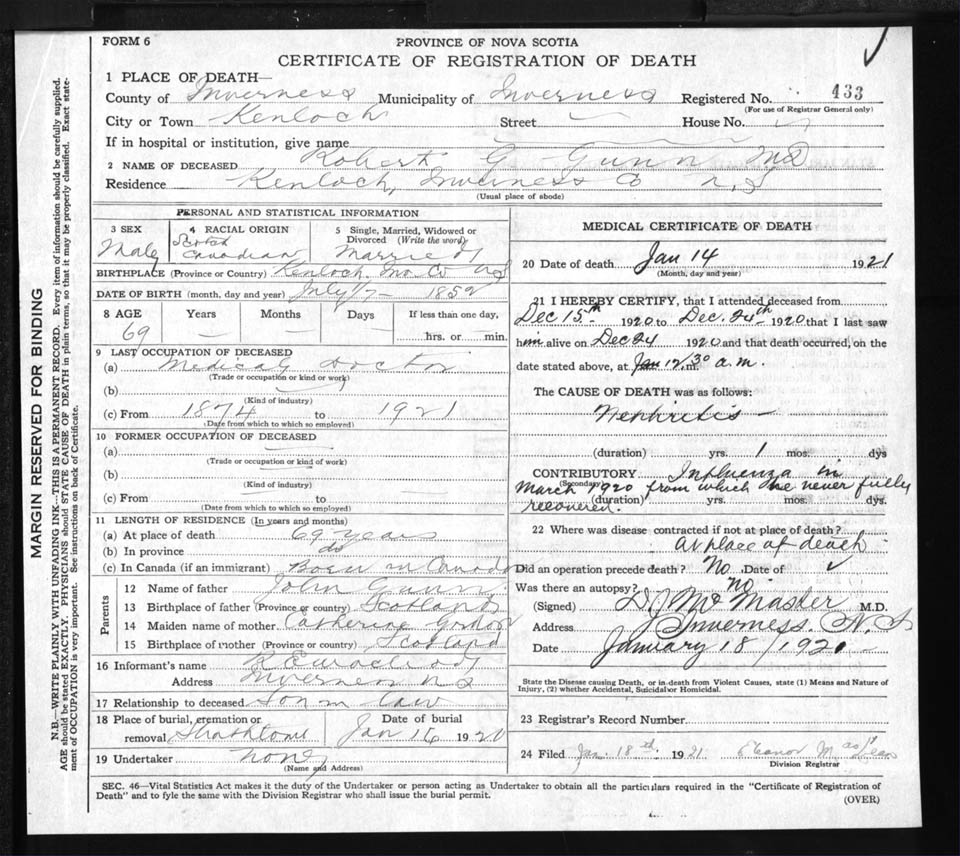 FORM 6
PROVINCE OF NOVA SCOTIA
CERTIFICATE OF REGISTRATION OF DEATH
1 PLACE OF DEATH—
County of Inverness Municipality of Inverness Registered No. 433
(For use of Registrar General only)
City or Town Kenloch Street — House No.
If in hospital or institution, give name
2 NAME OF DECEASED Robert G Gunn MD
Residence Kenloch, Inverness Co N,S
(Usual place of abode)
PERSONAL AND STATISTICAL INFORMATION
3 SEX Male
4 RACIAL ORIGIN Scotch Canadian
5 Single, Married, Widowed or Divorced (Write the word) Married
BIRTHPLACE (Province or Country) Kenloch. Inv. Co NS
DATE OF BIRTH (month, day and year) July 17 – 1852
8 AGE Years Months Days If less than one day,
69 — — — hrs. or min.
9 LAST OCCUPATION OF DECEASED
(a) Medical Doctor
(Trade or occupation or kind or work)
(b)
(Kind of industry)
(c) From 1874 to 1921
(Date from which to which so employed)
10 FORMER OCCUPATION OF DECEASED
(a) —
(Trade or occupation or kind of work)
(b) —
(Kind of industry)
(c) From — to —
(Date from which to which so employed)
11 LENGTH OF RESIDENCE (In years and months)
(a) At place of death 69 years
(b) In province do
(c) In Canada (if an immigrant) Born in Canada
Parents
12 Name of father John Gunn
13 Birthplace of father (Province or country) Scotland
14 Maiden name of mother Catherine Gordon
15 Birthplace of mother (Province or country) Scotland
16 Informant's name
Address Inverness N S
17 Relationship to deceased Son in law
18 Place of burial, cremation or removal Strathlorne
Date of burial Jan 16 1920
19 Undertaker None
(Name and Address)
MEDICAL CERTIFICATE OF DEATH
20 Date of death Jan 14 1921
(Month, day and year)
21 I HEREBY CERTIFY, that I attended deceased from
Dec 15th 1920 to Dec. 24th 1920 that I last saw
him alive on Dec 24 1920 and that death occurred, on the
date stated above, at 12/30 a.m.
The CAUSE OF DEATH was as follows:
Nephritis —
(duration) yrs. 1 mos. dys
CONTRIBUTORY Influenza in
(Secondary)
March 1920 from which he never fully
(duration) yrs. mos. dys
recovered.
22 Where was disease contracted if not at place of death?
At place of death
Did an operation precede death? No Date of ✓
Was there an autopsy? No.
(Signed) D J McMaster M.D.
Address Inverness. N. S
Date January 18/1921 –
State the Disease causing Death, or in death from Violent Causes, state (1) Means and Nature of
Injury, (2) whether Accidental, Suicidal or Homicidal.
23 Registrar's Record Number
24 Filed Jan. 18 1921 Eleanor
Division Registrar
SEC. 46—Vital Statistics Act makes it the duty of the Undertaker or person acting as Undertaker to obtain all the particulars required in the "Certificate of Registration of
Death" and to fyle the same with the Division Registrar who shall issue the burial permit.
(OVER)
MARGIN RESERVED FOR BINDING
N.B.—WRITE PLAINLY WITH UNFADING INK—THIS IS A PERMANENT RECORD. Every item of information should be carefully supplied.
AGE should be stated EXACTLY. PHYSICIANS should STATE CAUSE OF DEATH in plain terms, so that it may be properly classified. Exact state-
ment of OCCUPATION is very important. See instructions on back of Certificate.